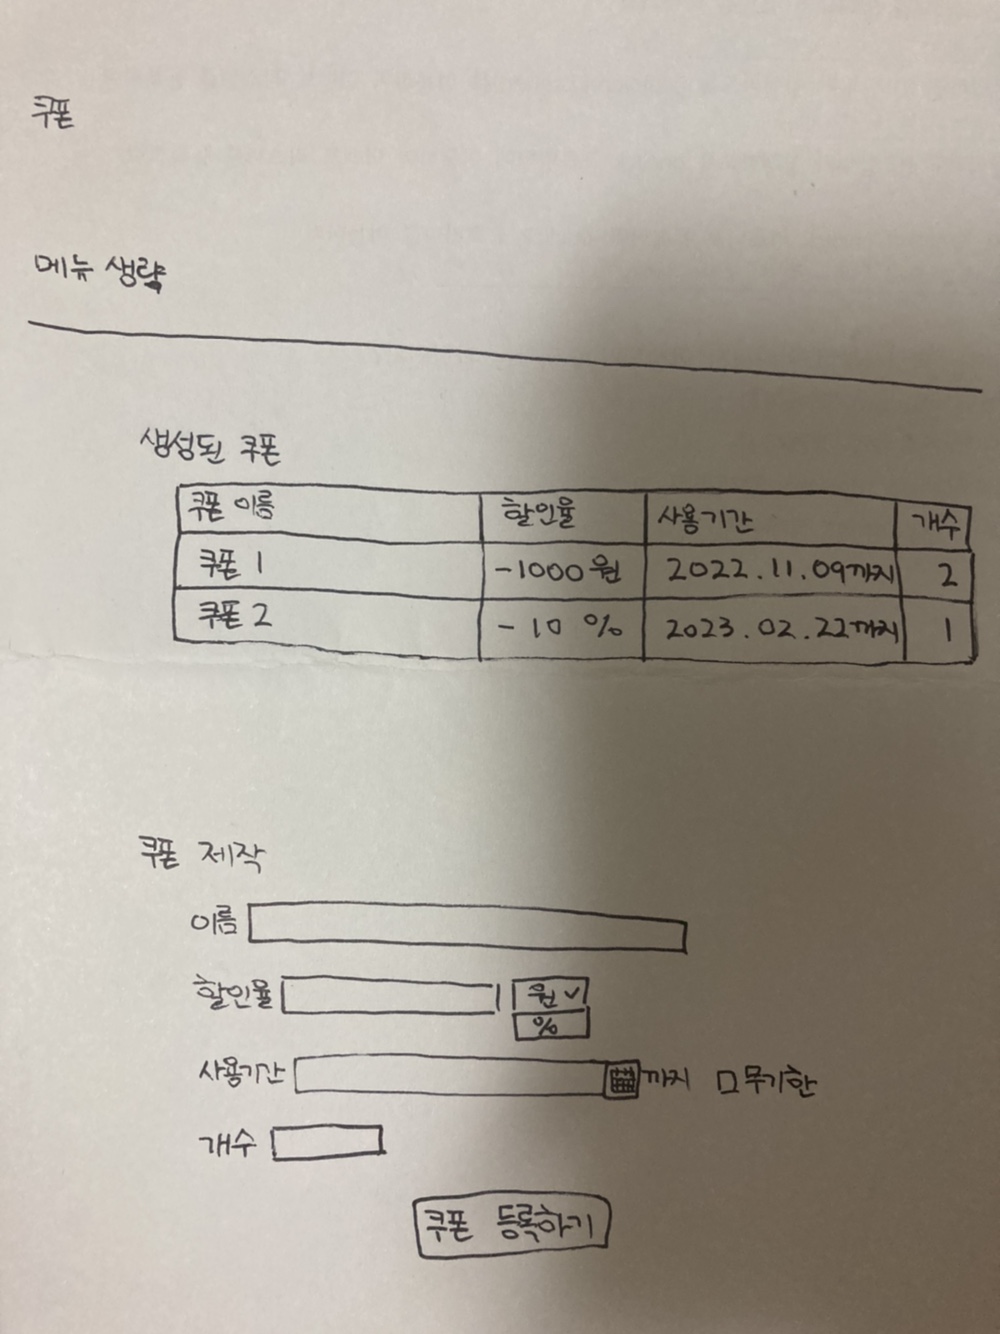 쿠폰
메뉴 생략
생성된 쿠폰
쿠폰 이름 할인율 사용기간 개수
쿠폰 1 -1000원 2022.11.09까지 2
쿠폰 2 -10 % 2023.02.22까지 1
쿠폰 제작
이름
할인율 원
%
사용기간 까지 무기한
개수
쿠폰 등록하기